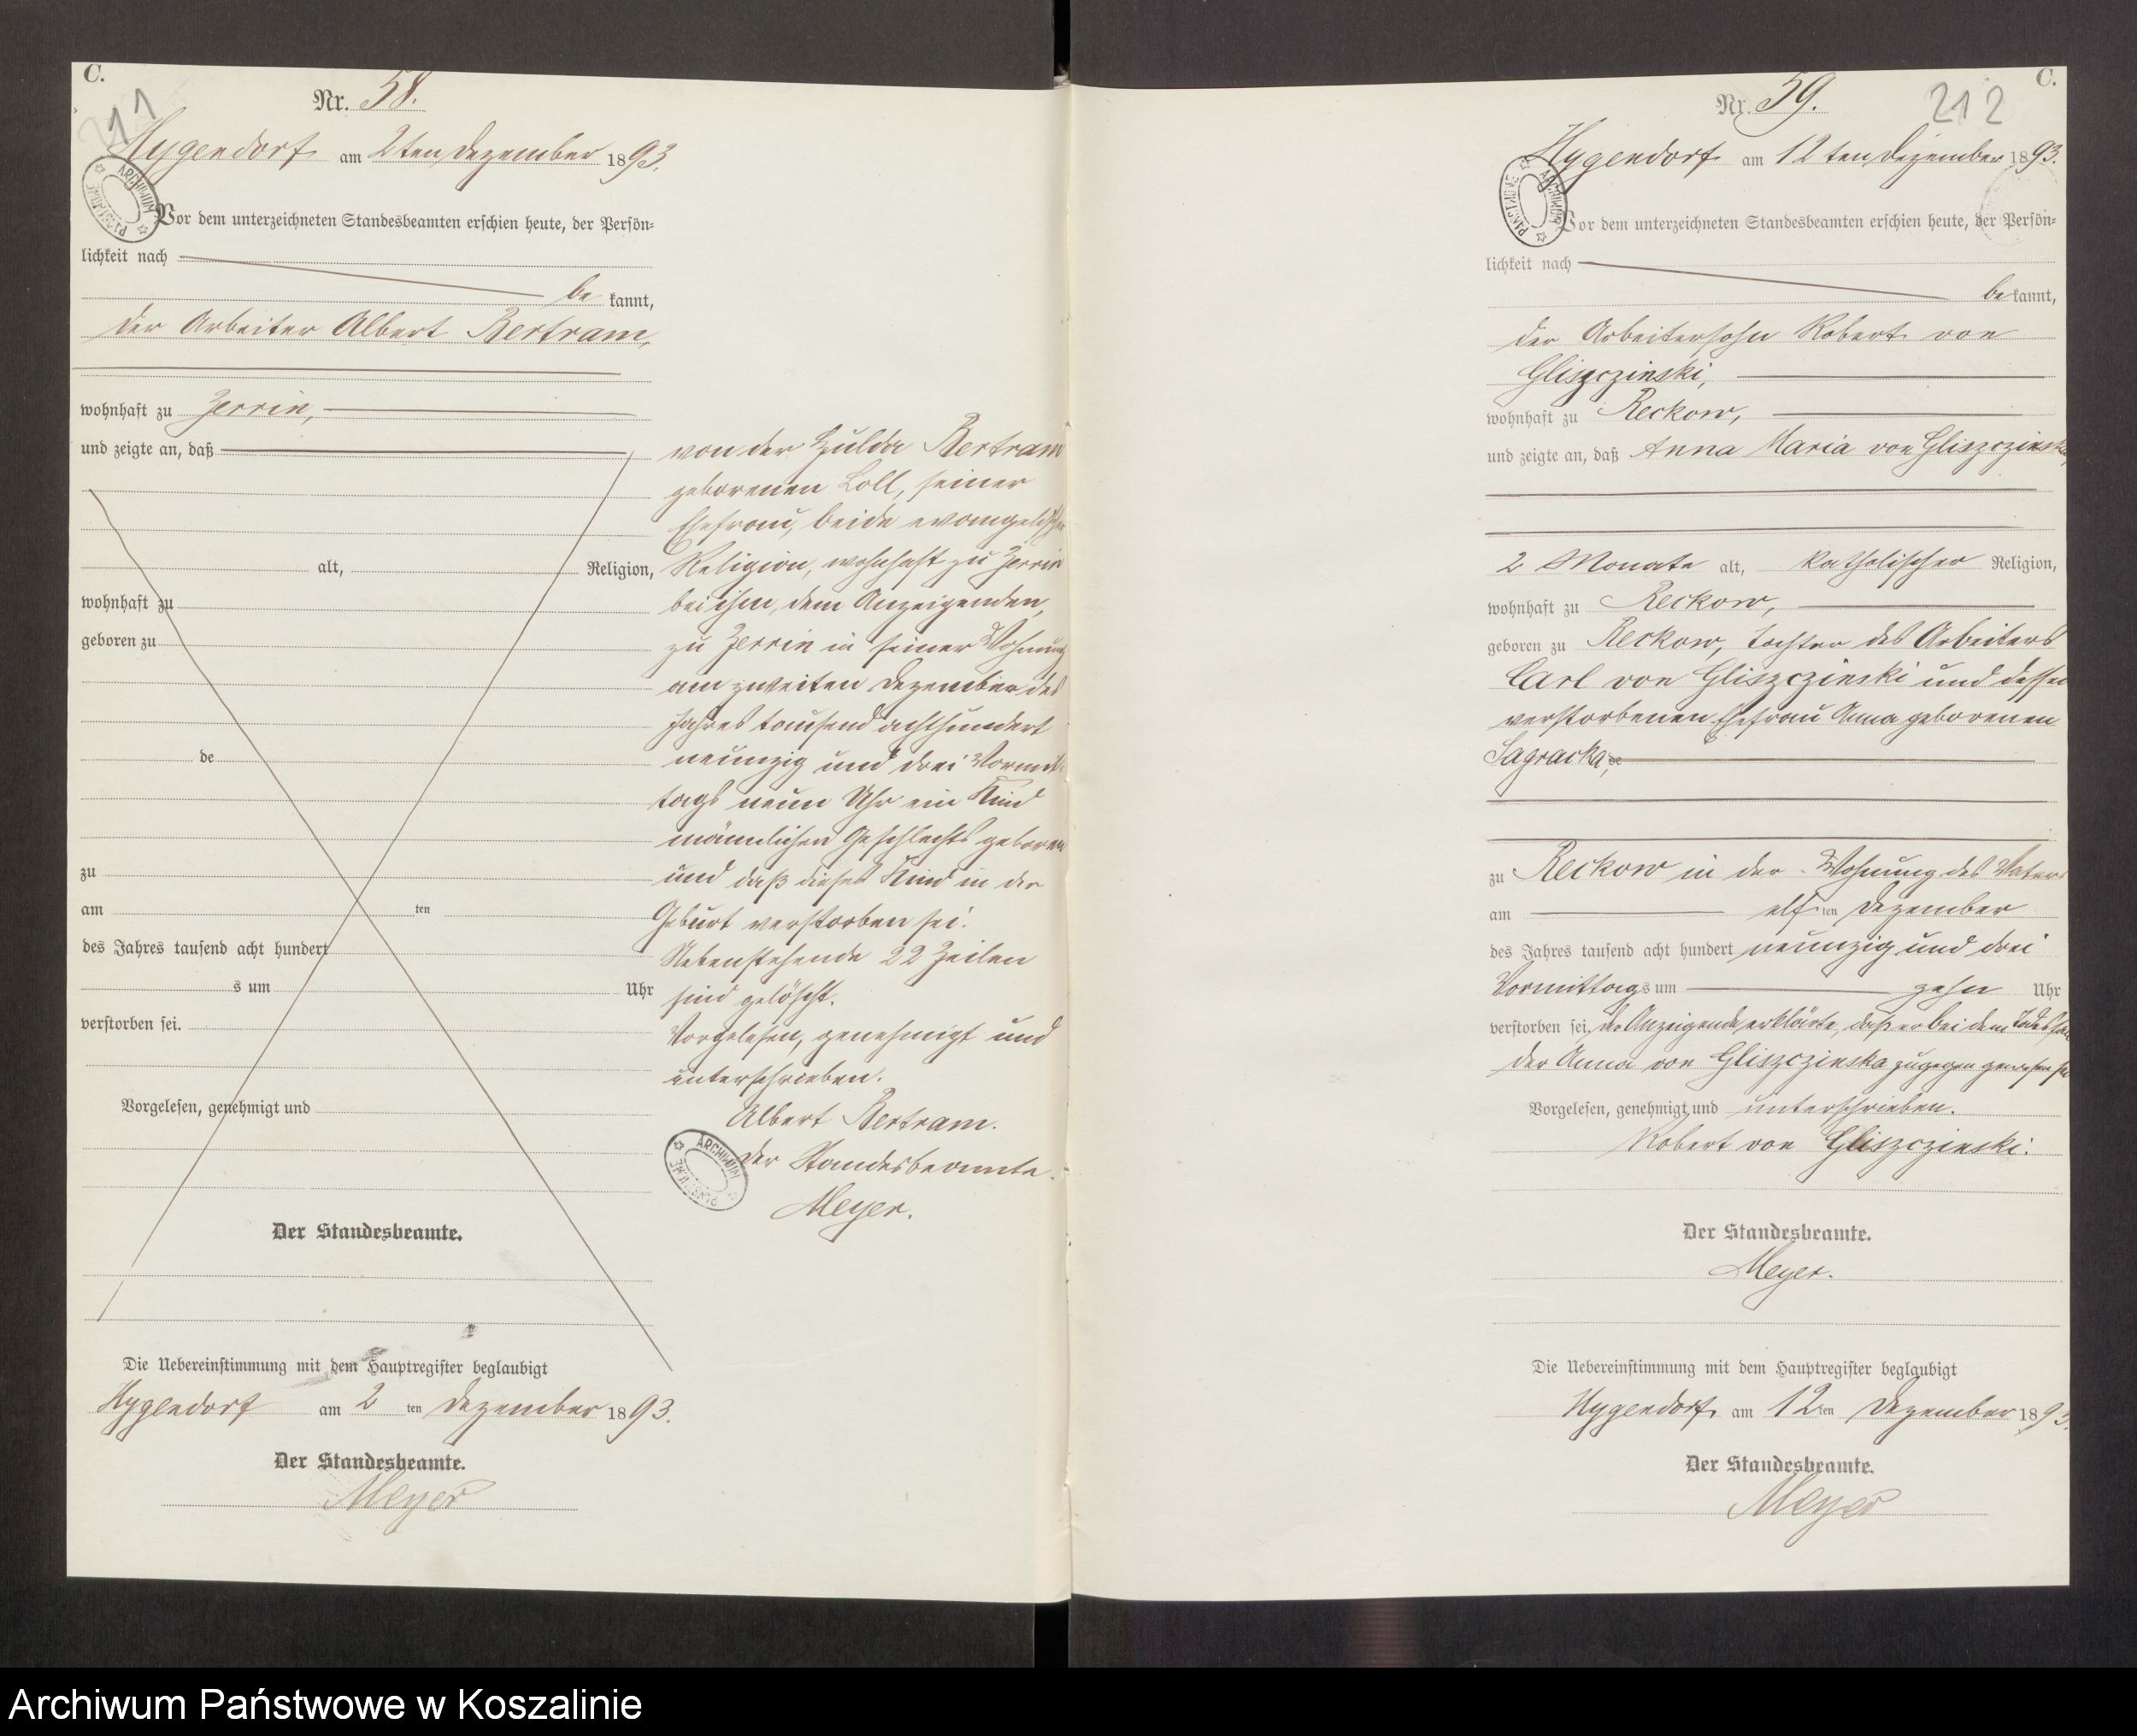 C.
211
Nr. 58.
Hygendorf am 2ten Dezember 1893.
ARCHIWUM PAŃSTWOWE
Vor dem unterzeichneten Standesbeamten erschien heute, der Persön-
lichkeit nach
be kannt,
der Arbeiter Albert Bertram,
wohnhaft zu Zerrin,
und zeigte an, daß
alt, Religion,
wohnhaft zu
geboren zu
de
zu
am ten
des Jahres tausend acht hundert
s um Uhr
verstorben sei.
Vorgelesen, genehmigt und
Der Standesbeamte.
Die Uebereinstimmung mit dem Hauptregister beglaubigt
Hygendorf am 2 ten Dezember 1893.
Der Standesbeamte.
Meyer
von der Hulda Bertram
geborenen Loll, seiner
Ehefrau, beide evangelischer
Religion, wohnhaft zu Zerrin
bei ihm, dem Anzeigenden,
zu Zerrin in seiner Wohnung
am zweiten Dezember des
Jahres tausend achthundert
neunzig und drei Vormit-
tags neun Uhr ein Kind
männlichen Geschlechts geboren
und daß dieses Kind in der
Geburt verstorben sei.
Nebenstehende 22 Zeilen
sind gelöscht.
Vorgelesen, genehmigt und
unterschrieben.
Albert Bertram.
Der Standesbeamte.
ARCHIWUM PAŃSTWOWE
Meyer.
C.
212
Nr. 59.
Hygendorf am 12 ten Dezember 1893.
ARCHIWUM PAŃSTWOWE
Vor dem unterzeichneten Standesbeamten erschien heute, der Persön-
lichkeit nach
be kannt,
der Arbeitersohn Robert von
Gliszczinski,
wohnhaft zu Reckow,
und zeigte an, daß Anna Maria von Gliszczinska,
2 Monate alt, katholischer Religion,
wohnhaft zu Reckow,
geboren zu Reckow, Tochter des Arbeiters
Carl von Gliszczinski und dessen
verstorbenen Ehefrau Anna geborenen
Sagracka, de
zu Reckow in der Wohnung des Vaters
am elf ten Dezember
des Jahres tausend acht hundert neunzig und drei
Vormittags um zehn Uhr
verstorben sei, der Anzeigende erklärte, daß er bei dem Tode
der Anna von Gliszczinska zugegen gewesen sei
Vorgelesen, genehmigt und unterschrieben.
Robert von Gliszczinski.
Der Standesbeamte.
Meyer.
Die Uebereinstimmung mit dem Hauptregister beglaubigt
Hygendorf, am 12 ten Dezember 1893.
Der Standesbeamte.
Meyer
Archiwum Państwowe w Koszalinie